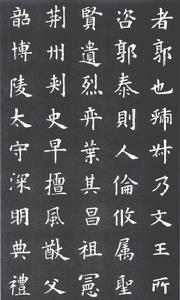 者郭也虢叔乃文王所
咨郭泰則人倫攸属聖
賢遺烈弈葉其昌祖憲
荊州刾史早擅風猷父
韶博陵太守深明典禮